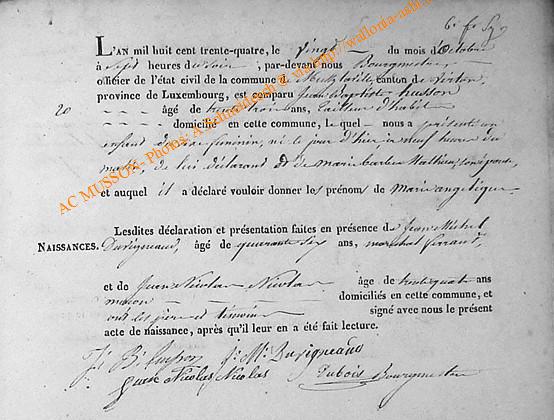 6. f. 5
L'AN mil huit cent trente-quatre, le vingt du mois d'Octobre
à sept heures du soir, par-devant nous Bourgmestre
officier de l'état civil de la commune de canton de Virton,
province de Luxembourg, est comparu Jean Baptiste husson
20 âgé de trente trois ans, tailleur d'habits
domicilié en cette commune, Lequel nous a présenté un
enfant de sexe féminin, né le jour d'hier à neuf heures du
matin, de lui déclarant et de marie barbe Mathieu, son épouse,
et auquel il a déclaré vouloir donner les prénoms de Marie angelique
Lesdites déclaration et présentation faites en présence de Jean Michel
NAISSANCES. Duvigneaud, âgé de quarante six ans, marechal ferrant,
et de Jean Nicolas Nicolas âgé de trente quatre ans
maçon domiciliés en cette commune, et
ont les père et témoins signé avec nous le présent
acte de naissance, après qu'il leur en a été fait lecture.
J. B. husson J. M. Duvigneaud
Jean Nicolas Nicolas Dubois Bourgmestre
AC MUSSON- Photos: A Schmit
http://wallonia-asbl